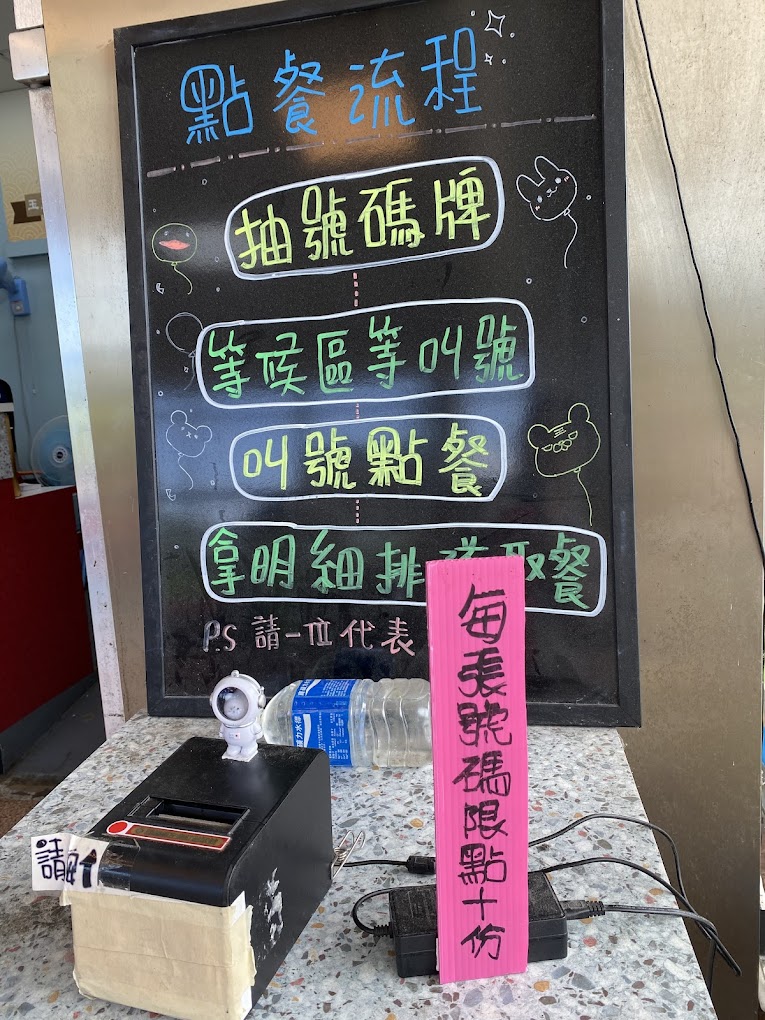 點餐流程
抽號碼牌
等候區等叫號
叫號點餐
拿明細排取餐
P.S 請一位代表
每張號碼限點十份
請
王